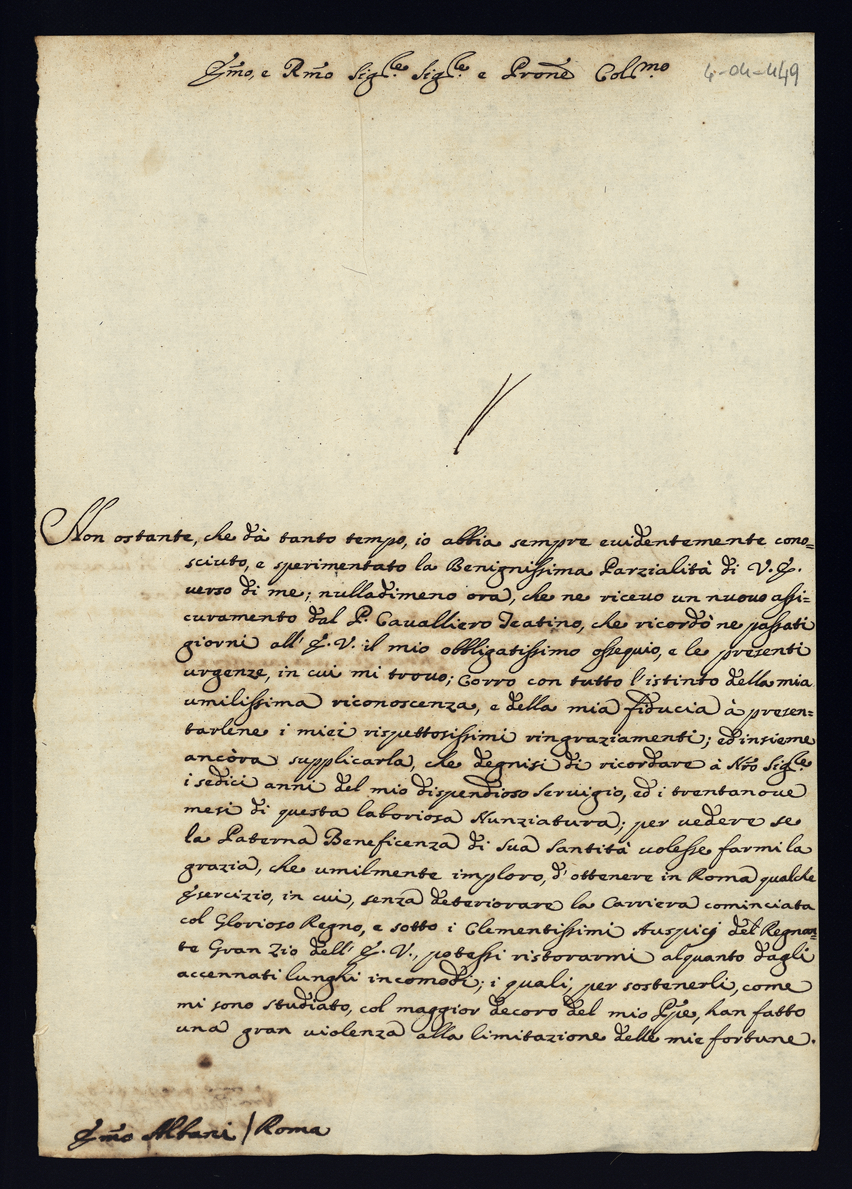 Em̃o, e Rm̃o Sig.re Sig.re e Prone Col.mo 4-04-449
Non ostante, che dà tanto tempo, io abbia sempre evidentemente cono=
sciuto, e sperimentato la Benignissima Parzialità di V. E.
verso di me; nulladimeno ora, che ne ricevo un nuovo assi=
curamento dal P. Cavalliero Teatino, che ricordò ne passati
giorni all' E. V. il mio obbligatissimo ossequio, e le presenti
urgenze, in cui mi trovo; corro con tutto l'istinto della mia
umilissima riconoscenza, e della mia fiducia à presen=
tarlene i miei rispettosissimi ringraziamenti; ed insieme
ancòra supplicarla, che degnisi di ricordare à Nr̃o Sig.re
i sedici anni del mio dispendioso servigio, ed i trentanove
mesi di questa laboriosa Nunziatura; per vedere se
la Paterna Beneficenza di sua santità volesse farmi la
grazia, che umilmente imploro, d'ottenere in Roma qualche
Esercizio, in cui, senza deteriorare la Carriera cominciata
col Glorioso Regno, e sotto i Clementissimi Auspicj del Regnan=
te Gran Zio dell' E. V., potessi ristorarmi alquanto dagli
accennati lunghi incomodi; i quali, per sostenerli, come
mi sono studiato, col maggior decoro del mio Pr̃pe, han fatto
una gran violenza alla limitazione delle mie fortune.
Em̃o Albani / Roma